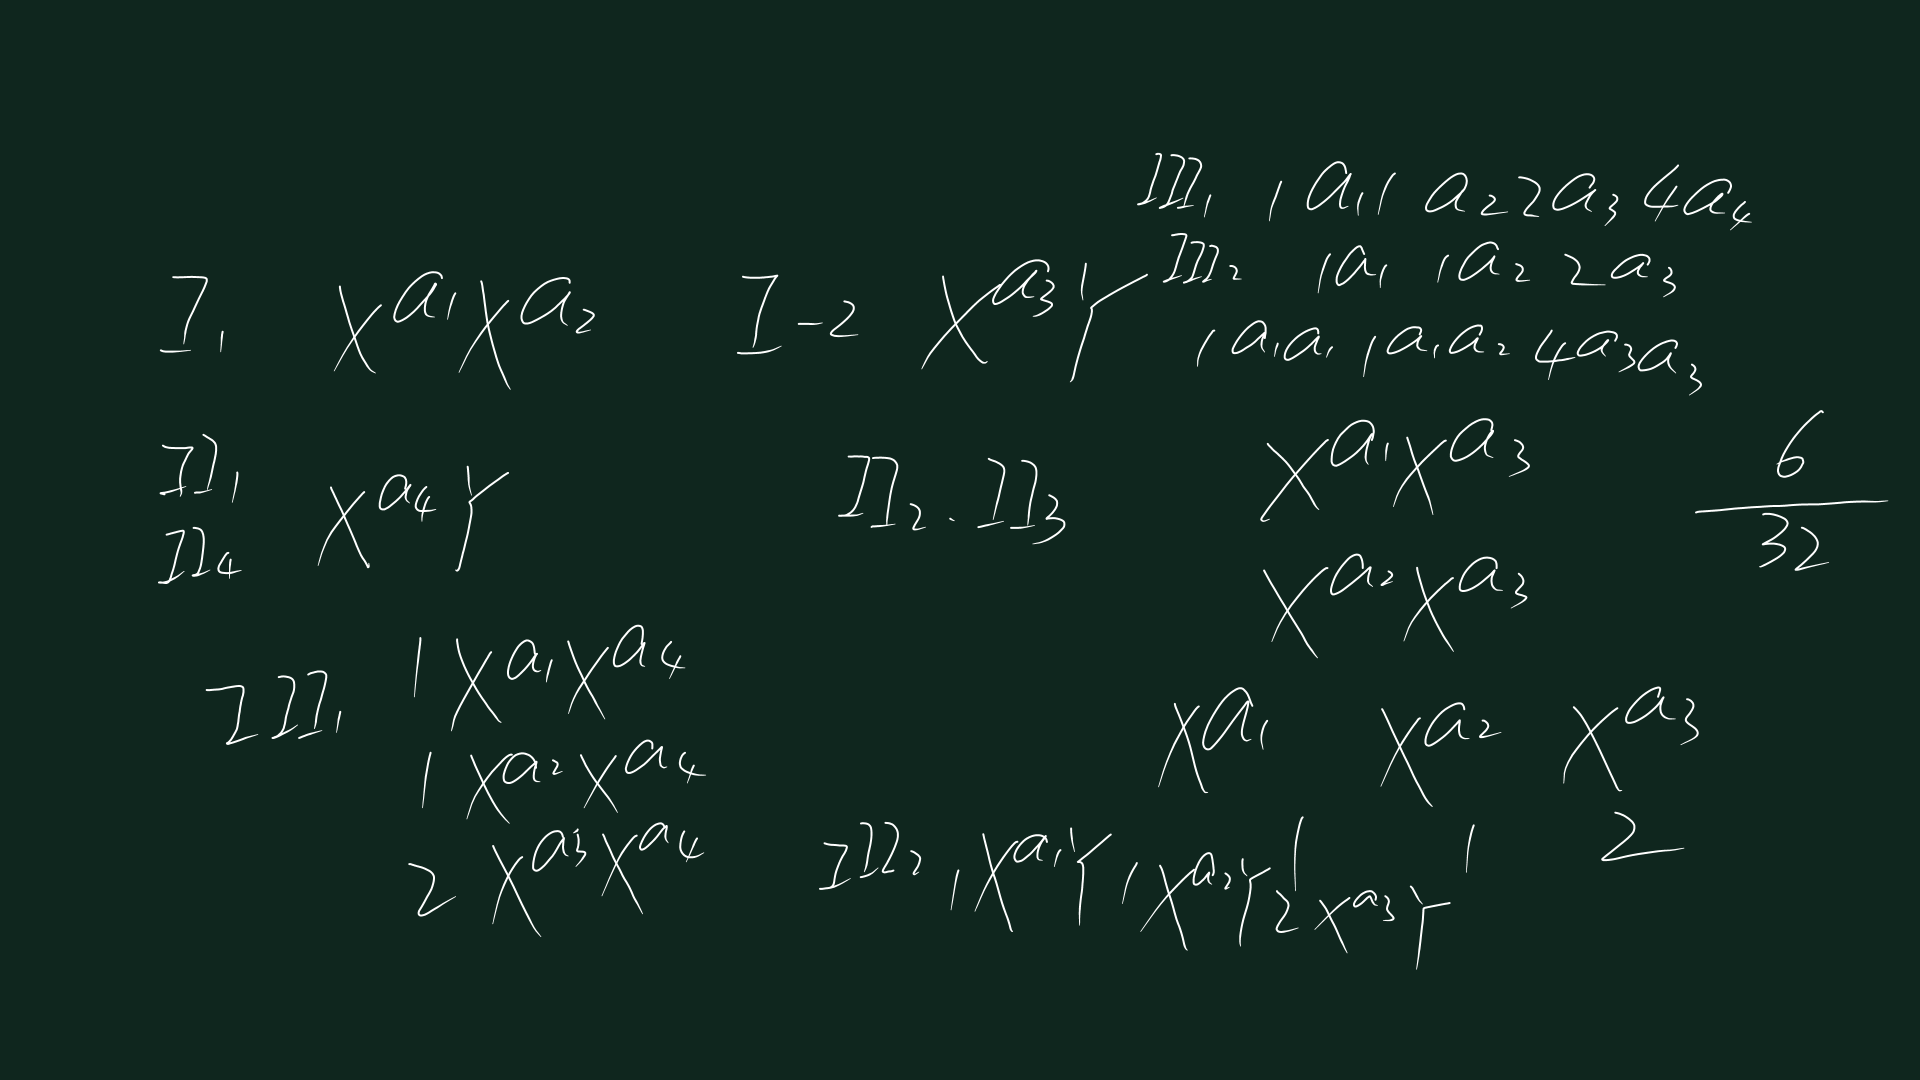 III₁ 1a₁1a₂2a₃4a₄
III₂ 1a₁ 1a₂ 2a₃
1a₁a₁ 1a₁a₂ 4a₃a₃
I₁ Xᵃ¹Xᵃ² I-2 Xᵃ³Y
II₁
II₄ Xᵃ⁴Y
II₂.II₃ Xᵃ¹Xᵃ³
Xᵃ²Xᵃ³
6
32
III₁ 1Xᵃ¹Xᵃ⁴
1Xᵃ²Xᵃ⁴
2Xᵃ³Xᵃ⁴
Xᵃ¹ Xᵃ² Xᵃ³
1 1 2
III₂ 1Xᵃ¹Y 1Xᵃ²Y 2Xᵃ³Y